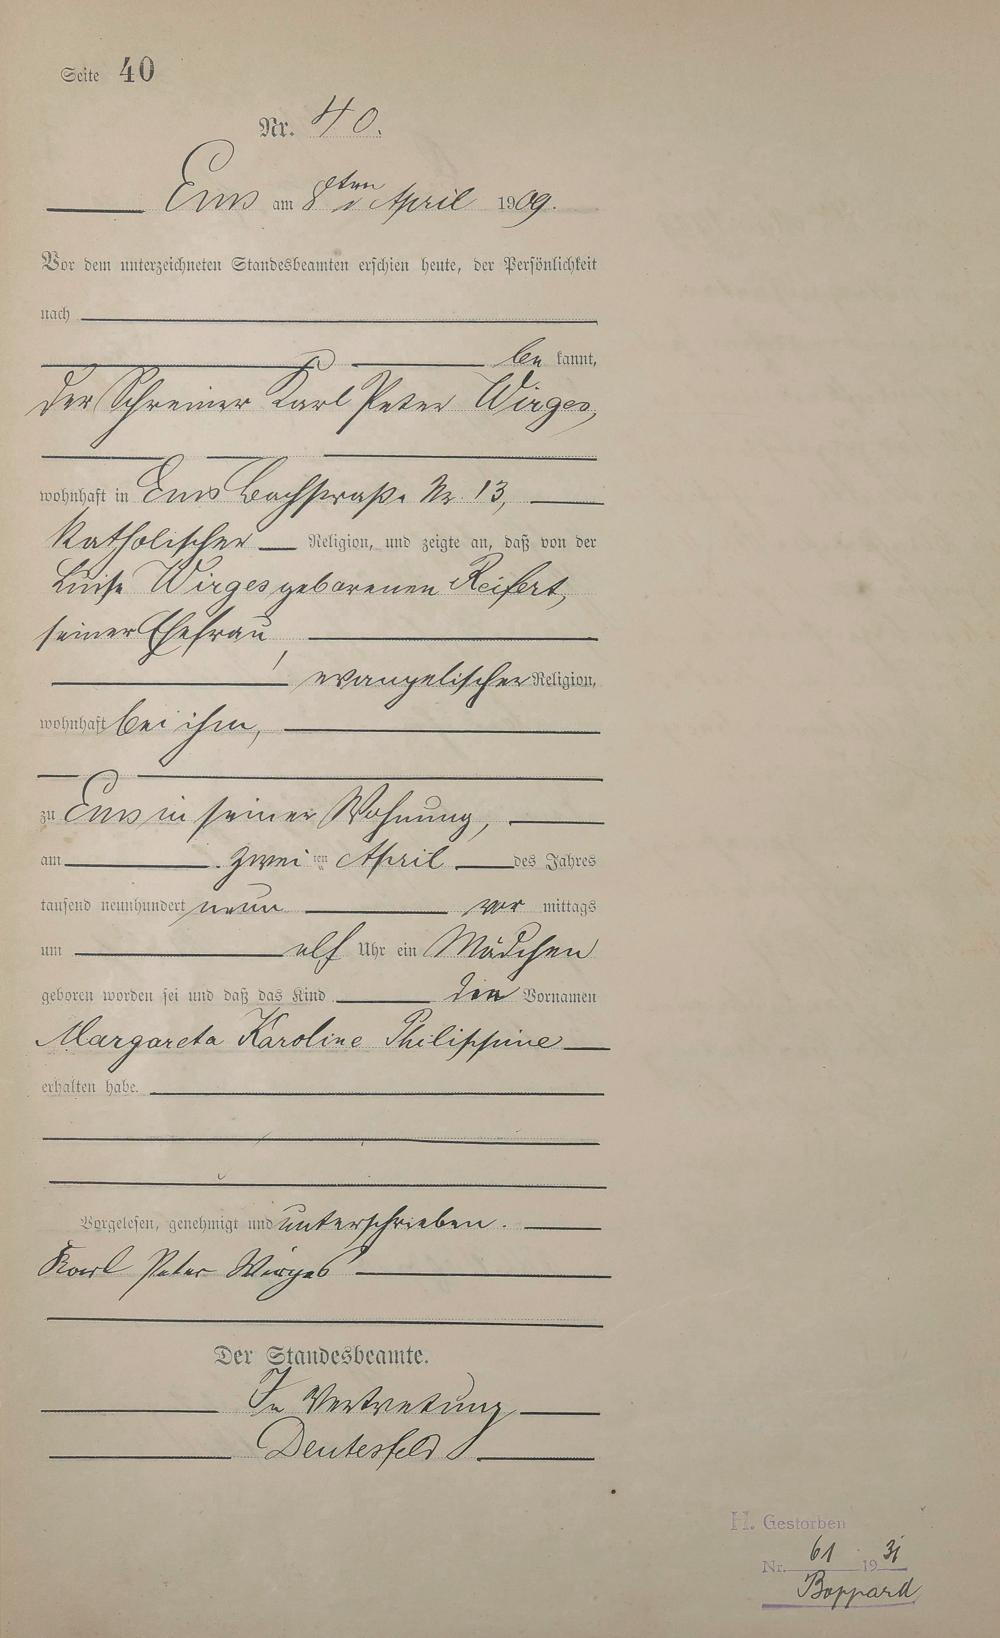 Seite 40
Nr. 40.
Ems am 8ten April 1909.
Vor dem unterzeichneten Standesbeamten erschien heute, der Persönlichkeit
nach
be kannt,
der Schreiner Karl Peter Wirges,
wohnhaft in Ems Bachstraße Nr 13,
katholischer Religion, und zeigte an, daß von der
Luise Wirges geborenen Reifert,
seiner Ehefrau,
evangelischer Religion,
wohnhaft bei ihm,
zu Ems in seiner Wohnung,
am zwei ten April des Jahres
tausend neunhundert neun vor mittags
um elf Uhr ein Mädchen
geboren worden sei und daß das Kind die Vornamen
Margareta Karoline Philippine
erhalten habe.
Vorgelesen, genehmigt und unterschrieben.
Karl Peter Wirges
Der Standesbeamte.
In Vertretung
Deutesfeld
H. Gestorben
Nr. 61 1931
Boppard